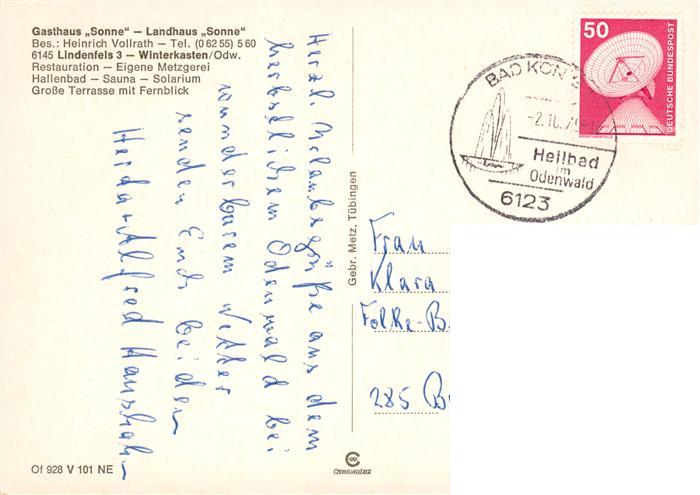 Gasthaus „Sonne“ – Landhaus „Sonne“
Bes.: Heinrich Vollrath – Tel. (0 62 55) 5 60
6145 Lindenfels 3 – Winterkasten/Odw.
Restauration – Eigene Metzgerei
Hallenbad – Sauna – Solarium
Große Terrasse mit Fernblick
Herzl. Urlaubsgrüße aus dem
herbstlichen Odenwald bei
wunderbarem Wetter
senden Euch beiden
Herda + Alfred
Gebr. Metz, Tübingen
50
DEUTSCHE BUNDESPOST
BAD KÖNIG
Heilbad
im
Odenwald
6123
Frau
Klara
Folke-B
285 B
Of 928 V 101 NE
CHROMOLUX